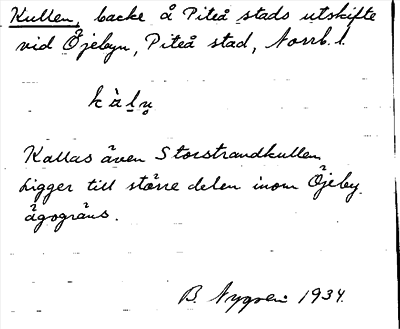 Kullen, backe å Piteå stads utskifte
vid Öjebyn, Piteå stad, Norrb. l.
kàlṇ
Kallas även Storstrandkullen
Ligger till större delen inom Öjeby
ägogräns.
B. Nygren 1934.